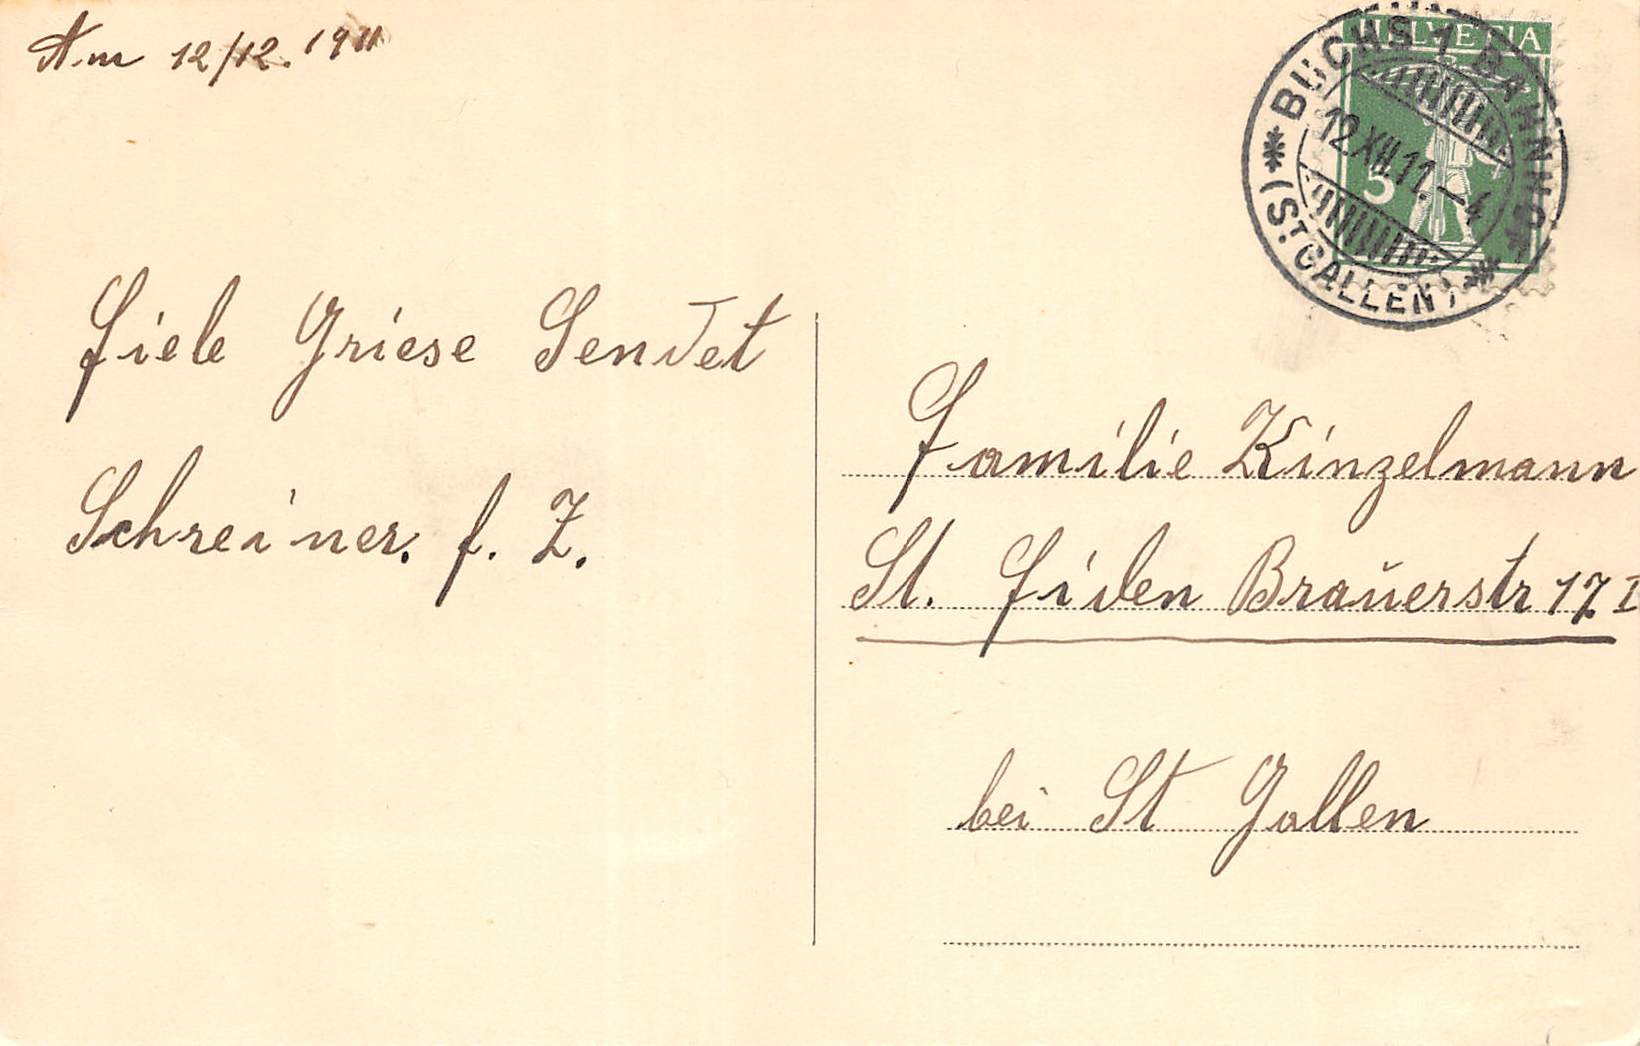 Am 12/12. 1911
Fiele Griese Sendet
Schreiner. f. Z.
HELVETIA
5
BUCHS 1 BAHNHOF
12.XII.11.-4
(ST GALLEN)
Familie Kinzelmann
St. Fiden Brauerstr 17 I
bei St Gallen